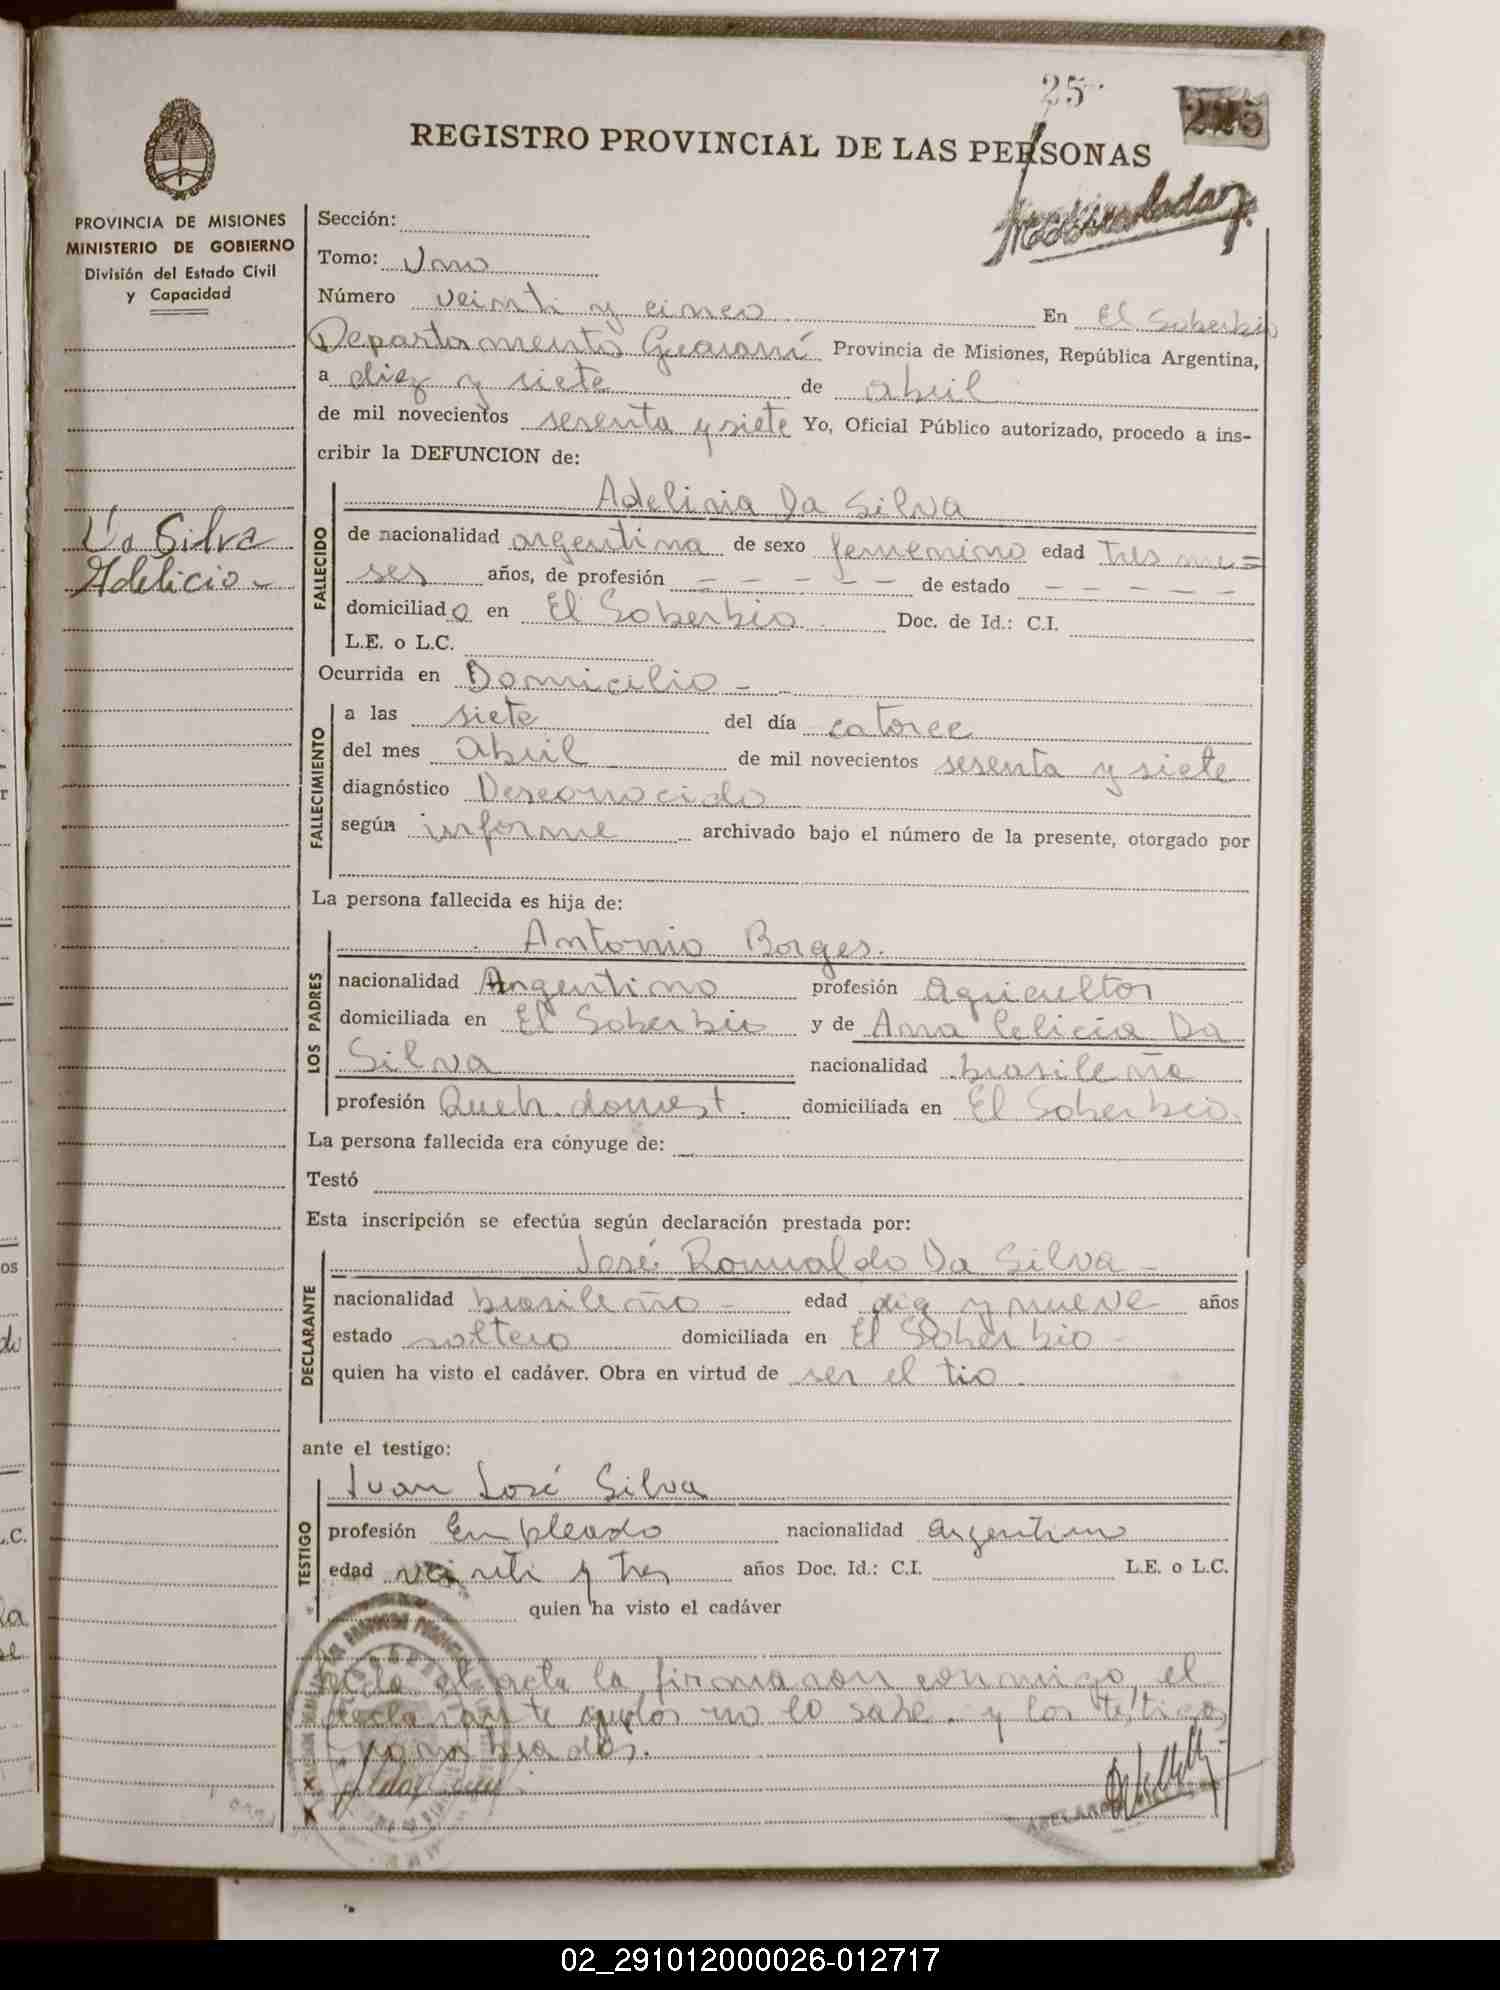 25
225
REGISTRO PROVINCIAL DE LAS PERSONAS
PROVINCIA DE MISIONES
MINISTERIO DE GOBIERNO
División del Estado Civil
y Capacidad
Da Silva
Adelicio
Sección:
Tomo: Uno
Número veinti y cinco En El Soberbio
Departamento Guaraní Provincia de Misiones, República Argentina,
a diez y siete de abril
de mil novecientos sesenta y siete Yo, Oficial Público autorizado, procedo a ins-
cribir la DEFUNCION de:
FALLECIDO
Adelinia Da Silva
de nacionalidad argentina de sexo femenino edad tres me=
ses años, de profesión - - - - - de estado - - - - -
domiciliado en El Soberbio Doc. de Id.: C.I.
L.E. o L.C.
Ocurrida en Domicilio -
FALLECIMIENTO
a las siete del día catorce
del mes abril de mil novecientos sesenta y siete
diagnóstico Desconocido
según informe archivado bajo el número de la presente, otorgado por
La persona fallecida es hija de:
LOS PADRES
Antonio Borges.
nacionalidad Argentino profesión agricultor
domiciliada en El Soberbio y de Ana Celicia Da
Silva nacionalidad brasileña
profesión Queh. domest. domiciliada en El Soberbio.
La persona fallecida era cónyuge de:
Testó
Esta inscripción se efectúa según declaración prestada por:
DECLARANTE
José Romualdo Da Silva -
nacionalidad brasileño - edad diez y nueve años
estado soltero domiciliada en El Soberbio -
quien ha visto el cadáver. Obra en virtud de ser el tio.
ante el testigo:
TESTIGO
Juan José Silva
profesión Empleado nacionalidad Argentino
edad veinti y tres años Doc. Id.: C.I. L.E. o L.C.
quien ha visto el cadáver
acta la firman con conmigo, el
declarante no lo sabe. y los testigos
nombrados.
02_291012000026-012717